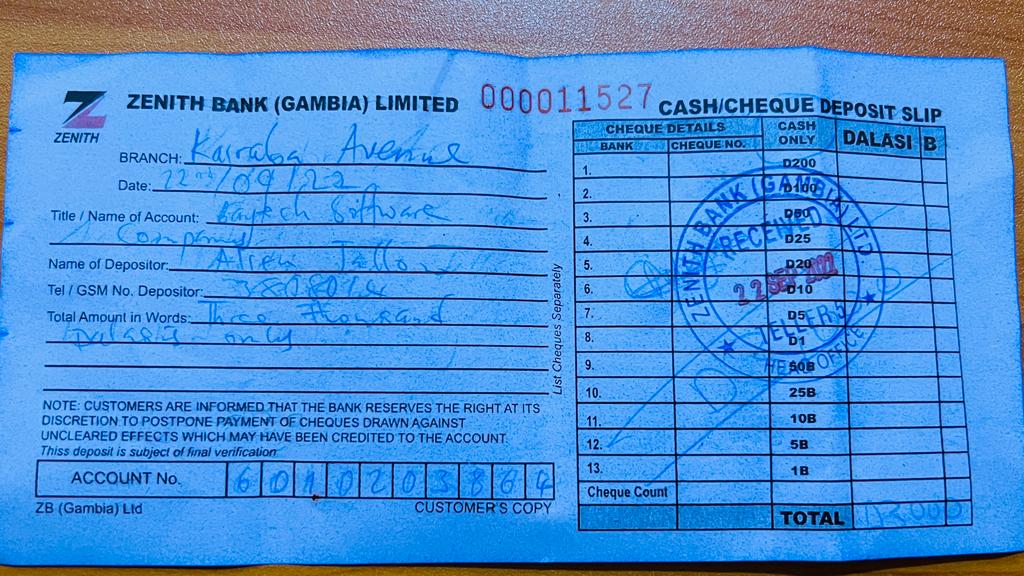 ZENITH
ZENITH BANK (GAMBIA) LIMITED
000011527
CASH/CHEQUE DEPOSIT SLIP
BRANCH: Kairaba Avenue
Date: 22nd/09/22
Title / Name of Account: Baytech Software
Company
Name of Depositor: Alieu Jallow
Tel / GSM No. Depositor:
Total Amount in Words: Three thousand
Dalasis only
NOTE: CUSTOMERS ARE INFORMED THAT THE BANK RESERVES THE RIGHT AT ITS
DISCRETION TO POSTPONE PAYMENT OF CHEQUES DRAWN AGAINST
UNCLEARED EFFECTS WHICH MAY HAVE BEEN CREDITED TO THE ACCOUNT.
Thiss deposit is subject of final verification
ACCOUNT No. 6010203864
ZB (Gambia) Ltd
CUSTOMER'S COPY
List Cheques Separately
CHEQUE DETAILS CASH ONLY DALASI B
BANK CHEQUE NO.
1. D200
2. D100
3. D50
4. D25
5. D20
6. D10
7. D5
8. D1
9. 50B
10. 25B
11. 10B
12. 5B
13. 1B
Cheque Count
TOTAL
ZENITH BANK (GAMBIA) LTD
RECEIVED
22 SEP 2022
TELLER 5
HEAD OFFICE